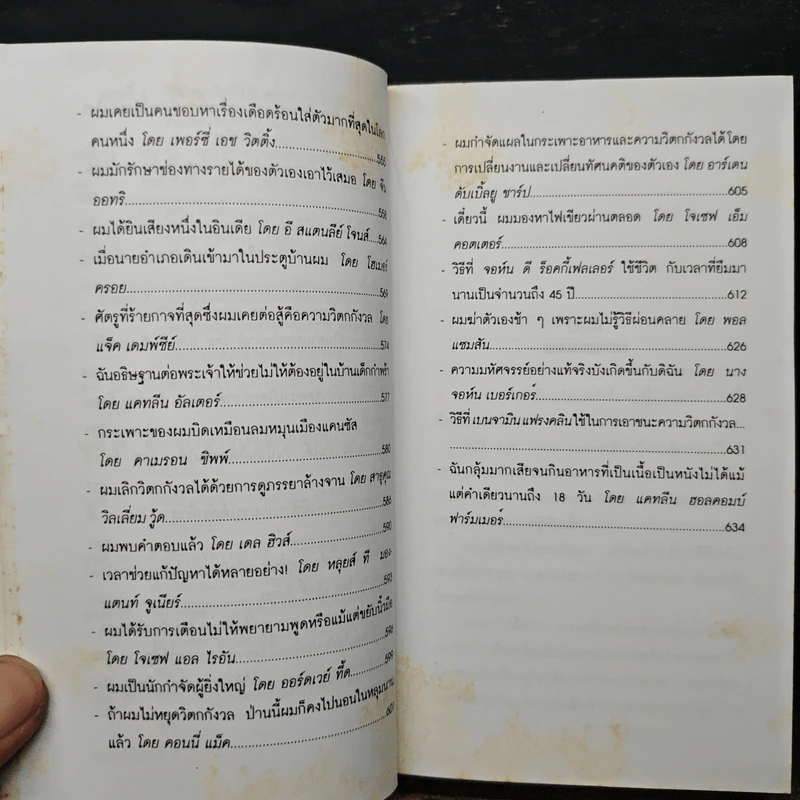 - ผมเคยเป็นคนชอบหาเรื่องเดือดร้อนใส่ตัวมากที่สุดในโลก
คนหนึ่ง โดย เพอร์ซี่ เอช วิตติ้ง
- ผมมักรักษาช่องทางรายได้ของตัวเองเอาไว้เสมอ โดย จีน
ออทรี
- ผมได้ยินเสียงหนึ่งในอินเดีย โดย อี สแตนลีย์ โจนส์.564
- เมื่อนายอำเภอเดินเข้ามาในประตูบ้านผม โดย โฮเมอร์
ครอย 569
- ศัตรูที่ร้ายกาจที่สุดซึ่งผมเคยต่อสู้คือความวิตกกังวล โดย
แจ็ค เดมพ์ซีย์ 574
- ฉันอธิษฐานต่อพระเจ้าให้ช่วยไม่ให้ต้องอยู่ในบ้านเด็กกำพร้า
โดย แคทลีน อัลเตอร์ 577
- กระเพาะของผมบิดเหมือนลมหมุนเมืองแคนซัส
โดย คาเมรอน ชิพพ์ 580
- ผมเลิกวิตกกังวลได้ด้วยการดูภรรยาล้างจาน โดย สาธุคุณ
วิลเลี่ยม วู้ด 586
- ผมพบคำตอบแล้ว โดย เดล ฮิวส์ 590
- เวลาช่วยแก้ปัญหาได้หลายอย่าง! โดย หลุยส์ ที มอง-
แตนท์ จูเนียร์ 593
- ผมได้รับการเตือนไม่ให้พยายามพูดหรือแม้แต่ขยับนิ้วมือ
โดย โจเซฟ แอล ไรอัน 596
- ผมเป็นนักกำจัดผู้ยิ่งใหญ่ โดย ออร์ดเวย์ ที้ด 599
- ถ้าผมไม่หยุดวิตกกังวล ป่านนี้ผมก็คงไปนอนในหลุมนาน
แล้ว โดย คอนนี่ แม็ค 601
- ผมกำจัดแผลในกระเพาะอาหารและความวิตกกังวลได้ โดย
การเปลี่ยนงานและเปลี่ยนทัศนคติของตัวเอง โดย อาร์เดน
ดับเบิ้ลยู ชาร์ป 605
- เดี๋ยวนี้ ผมมองหาไฟเขียวผ่านตลอด โดย โจเซฟ เอ็ม
คอตเตอร์ 608
- วิธีที่ จอห์น ดี ร็อคกี้เฟลเลอร์ ใช้ชีวิต กับเวลาที่ยืมมา
นานเป็นจำนวนถึง 45 ปี 612
- ผมฆ่าตัวเองช้า ๆ เพราะผมไม่รู้วิธีผ่อนคลาย โดย พอล
แซมสัน 626
- ความมหัศจรรย์อย่างแท้จริงบังเกิดขึ้นกับดิฉัน โดย นาง
จอห์น เบอร์เกอร์ 628
- วิธีที่ เบนจามิน แฟรงคลิน ใช้ในการเอาชนะความวิตกกังวล...
631
- ฉันกลุ้มมากเสียจนกินอาหารที่เป็นเนื้อเป็นหนังไม่ได้แม้
แต่คำเดียวนานถึง 18 วัน โดย แคทลีน ฮอลคอมบ์
ฟาร์มเมอร์ 634